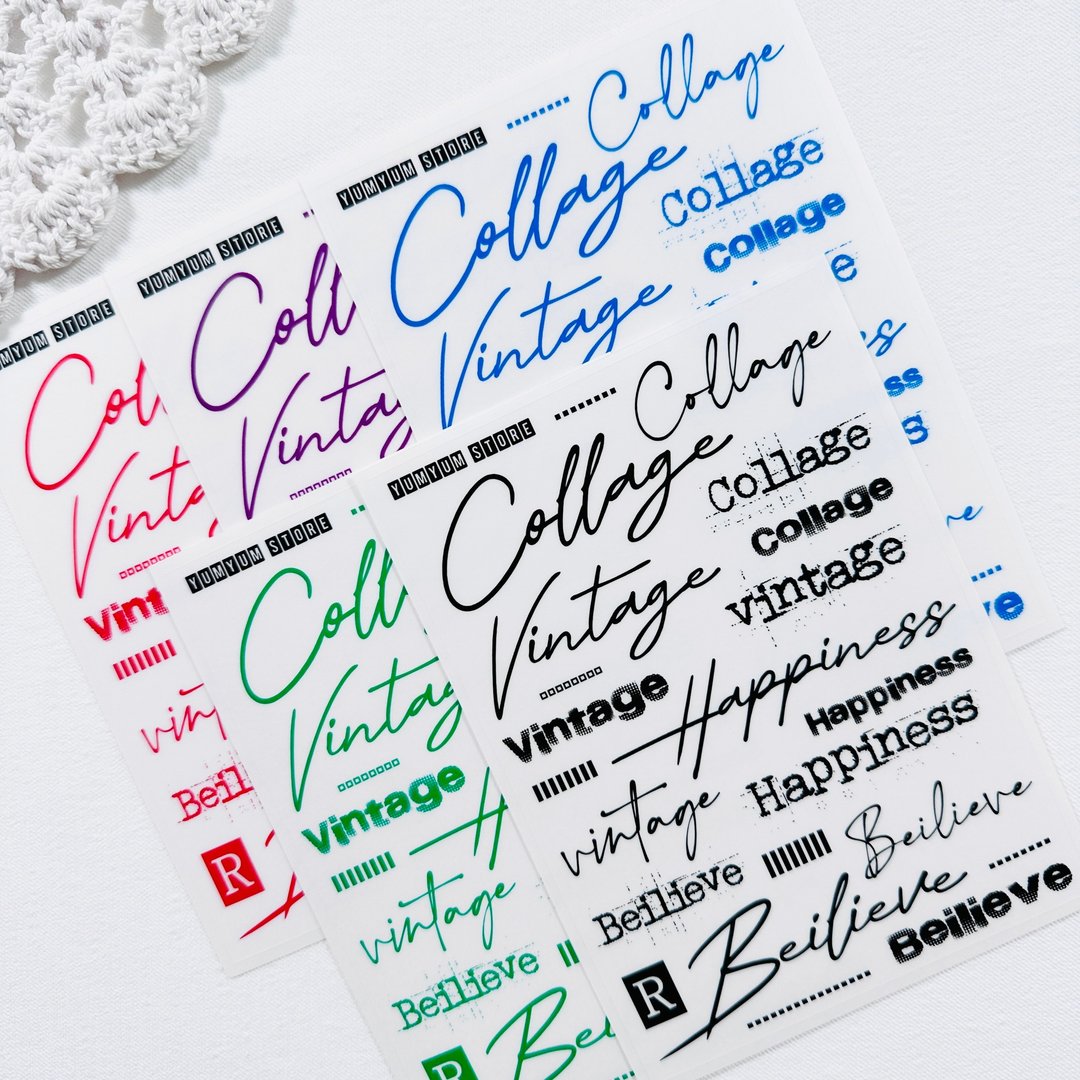 YUMYUM STORE
Collage
Collage
Collage
Collage
Vintage
YUMYUM STORE
Coll
Vinta
YUMYUM STORE
Col
Vinta
Vint
vin
Beil
R
YUMYUM STORE
Coll
Vintag
Vintage
H
vintage
Beilieve
R
Bei
YUMYUM STORE
Collage
Collage
Collage
Collage
Vintage
vintage
Vintage
Happiness
Happiness
Happiness
vintage
Beilieve
Beilieve
R
Beilieve
Beilieve